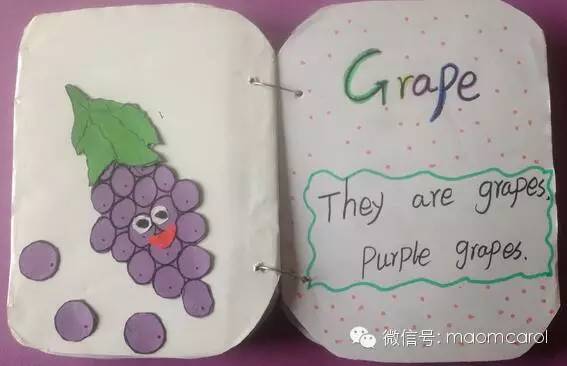 Grape
They are grapes.
Purple grapes.
微信号: maomcarol